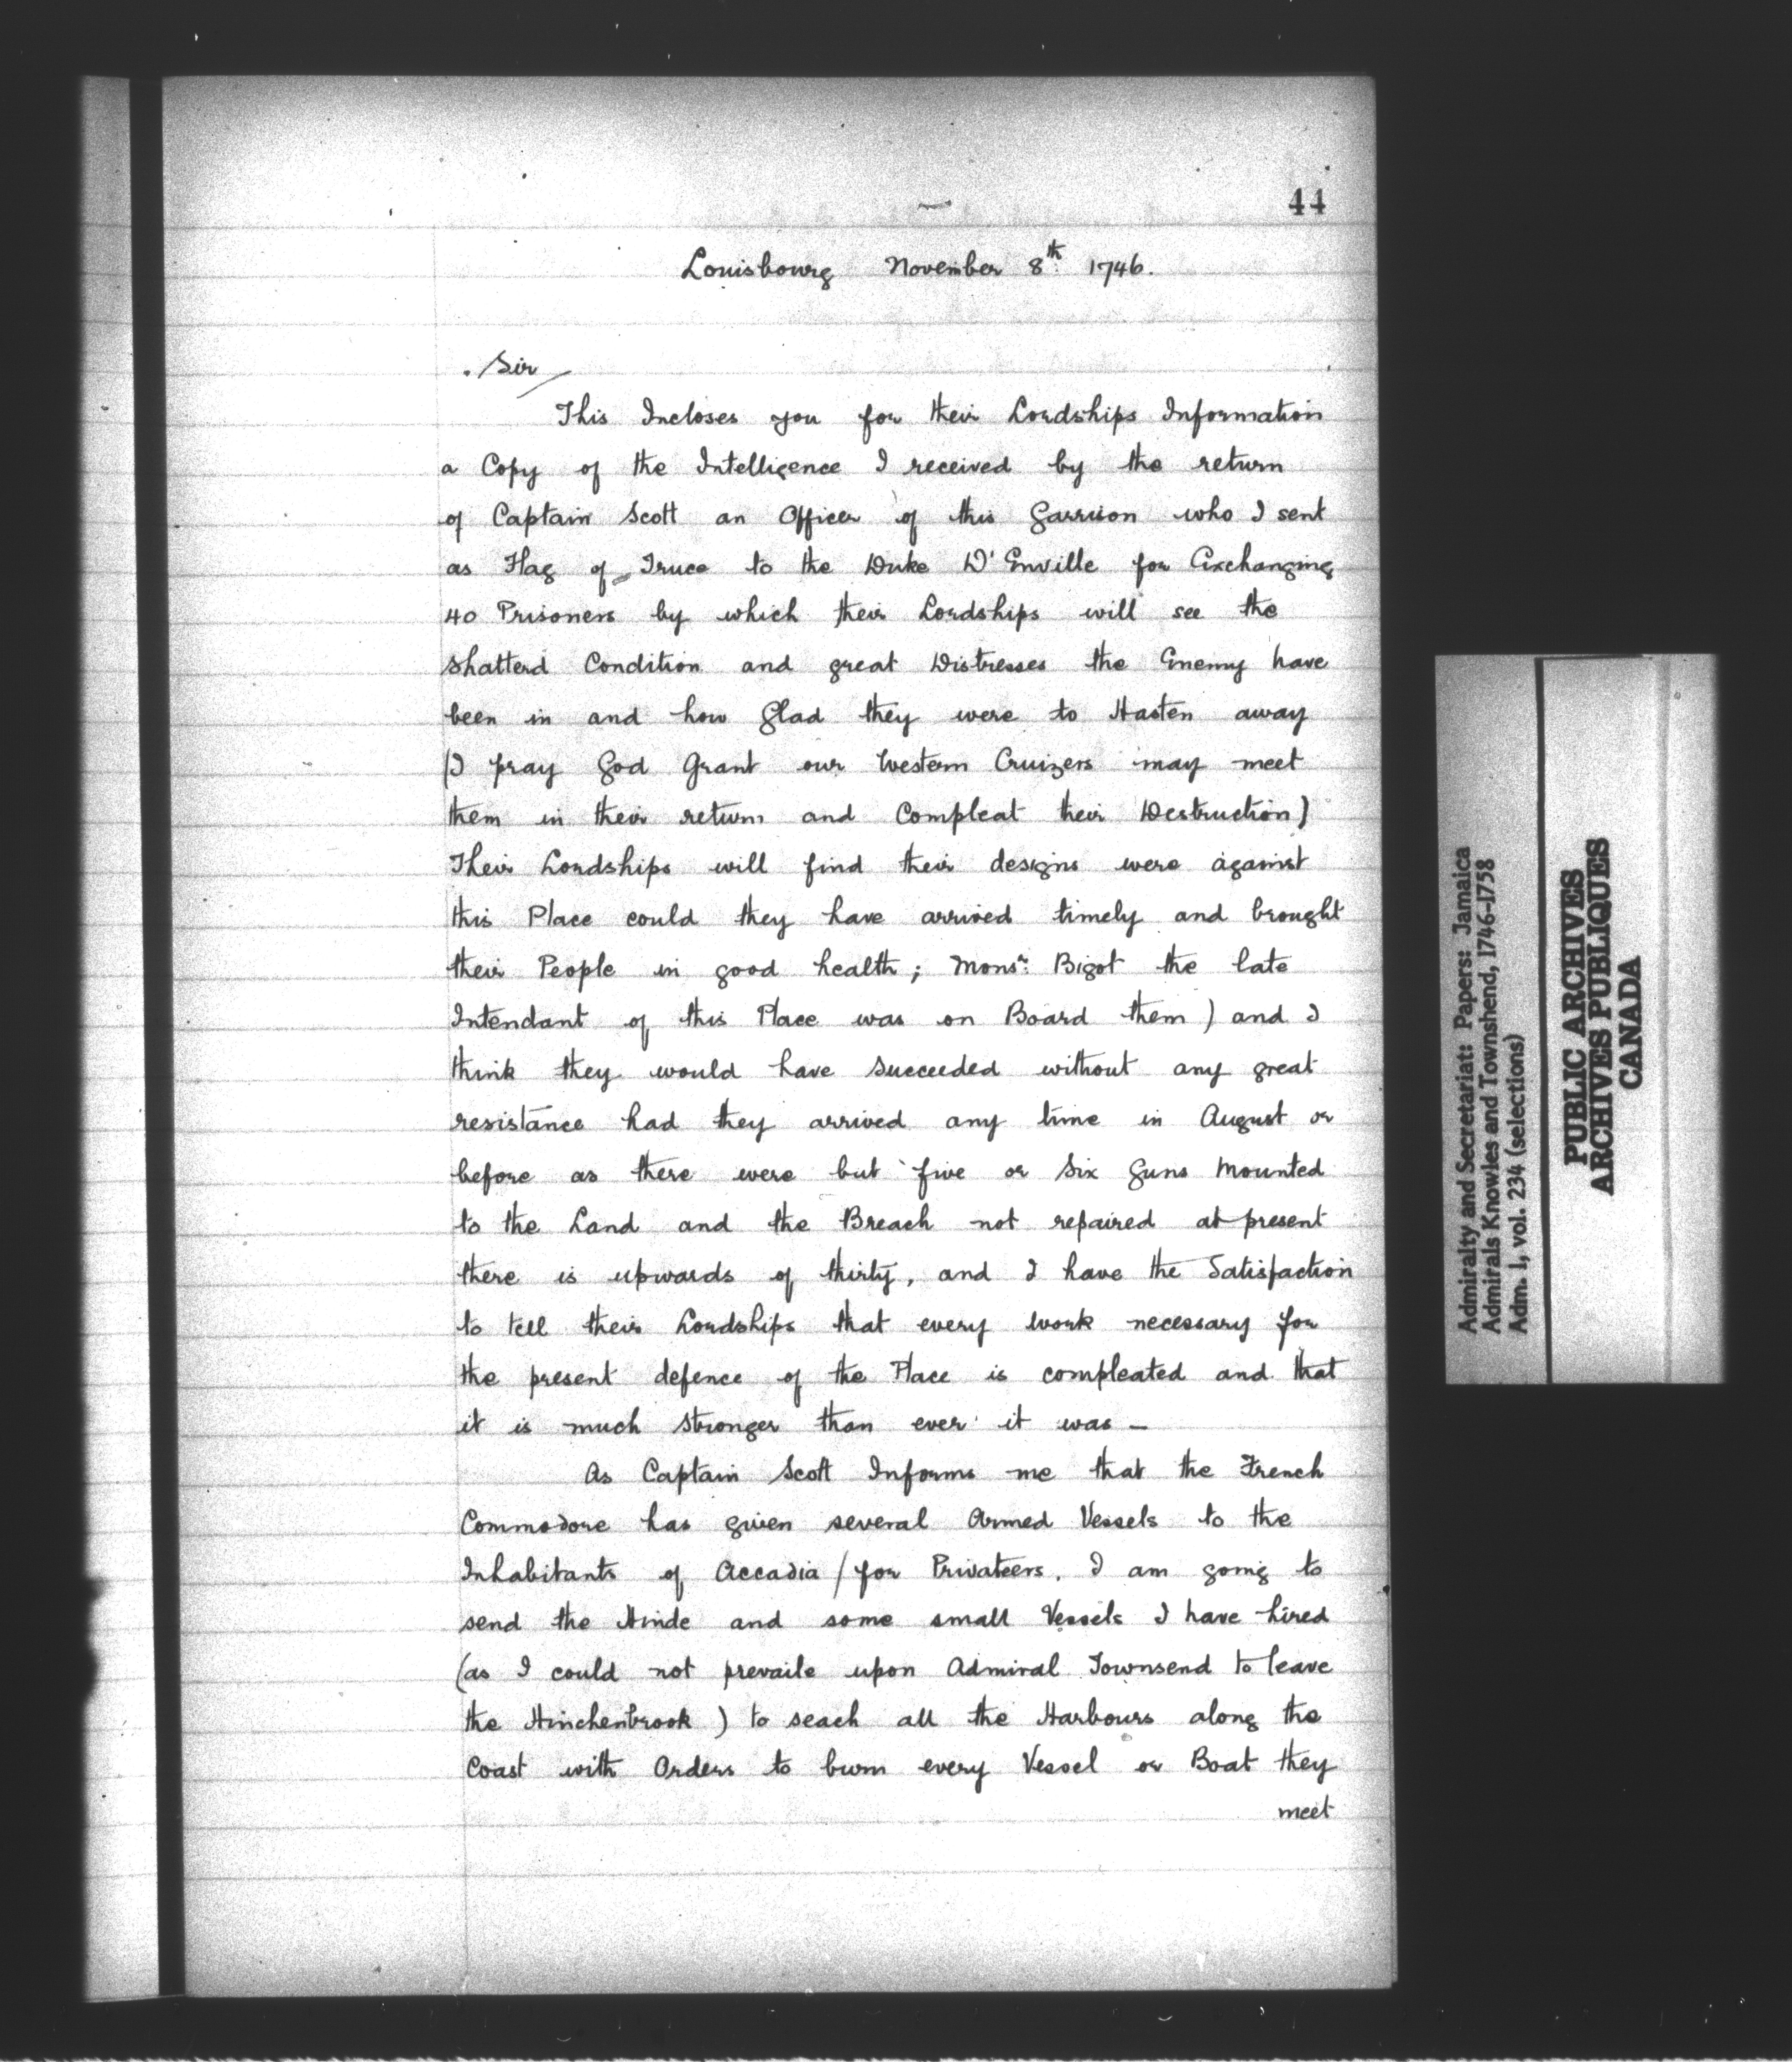 44
Louisbourg November 8th 1746.
Sir
This Incloses you for their Lordships Information
a Copy of the Intelligence I received by the return
of Captain Scott an Officer of this Garrison who I sent
as Flag of Truce to the Duke D'Enville for Exchanging
40 Prisoners by which their Lordships will see the
shatterd Condition and great Distresses the Enemy have
been in and how Glad they were to Hasten away
(I pray God Grant our Western Cruizers may meet
them in their return and Compleat their Destruction)
Their Lordships will find their designs were against
this Place could they have arrived timely and brought
their People in good health; Monsr. Bigot the late
Intendant of this Place was on Board them) and I
think they would have succeeded without any great
resistance had they arrived any time in August or
before as there were but five or six Guns Mounted
to the Land and the Breach not repaired at present
there is upwards of thirty, and I have the Satisfaction
to tell their Lordships that every work necessary for
the present defence of the Place is compleated and that
it is much stronger than ever it was –
As Captain Scott Informs me that the French
Commodore has given several Armed Vessels to the
Inhabitants of Accadia / for Privateers, I am going to
send the Hinde and some small Vessels I have hired
(as I could not prevaile upon Admiral Townsend to leave
the Hinchenbrook) to seach all the Harbours along the
Coast with Orders to burn every Vessel or Boat they
meet
Admiralty and Secretariat: Papers: Jamaica
Admirals Knowles and Townshend, 1746-1758
Adm. 1, vol. 234 (selections)
PUBLIC ARCHIVES
ARCHIVES PUBLIQUES
CANADA